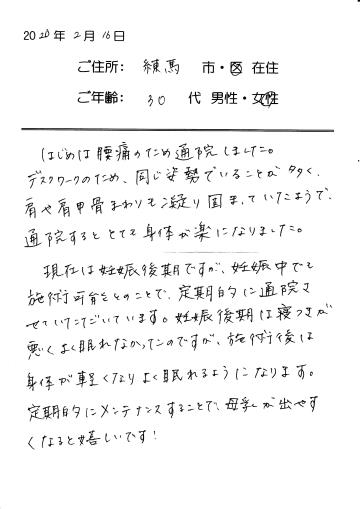 2020年 2月 16日
ご住所: 練馬 市・区 在住
ご年齢: 30 代 男性・女性
はじめは腰痛のため通院しました。
デスクワークのため、同じ姿勢でいることが多く、
肩や肩甲骨まわりも凝り固まっていたようで、
通院するととても身体が楽になりました。
現在は妊娠後期ですが、妊娠中でも
施術可能とのことで、定期的に通院さ
せていただいています。妊娠後期は寝つきが
悪くよく眠れなかったのですが、施術後は
身体が軽くなりよく眠れるようになります。
定期的にメンテナンスすることで、母乳が出やす
くなると嬉しいです!